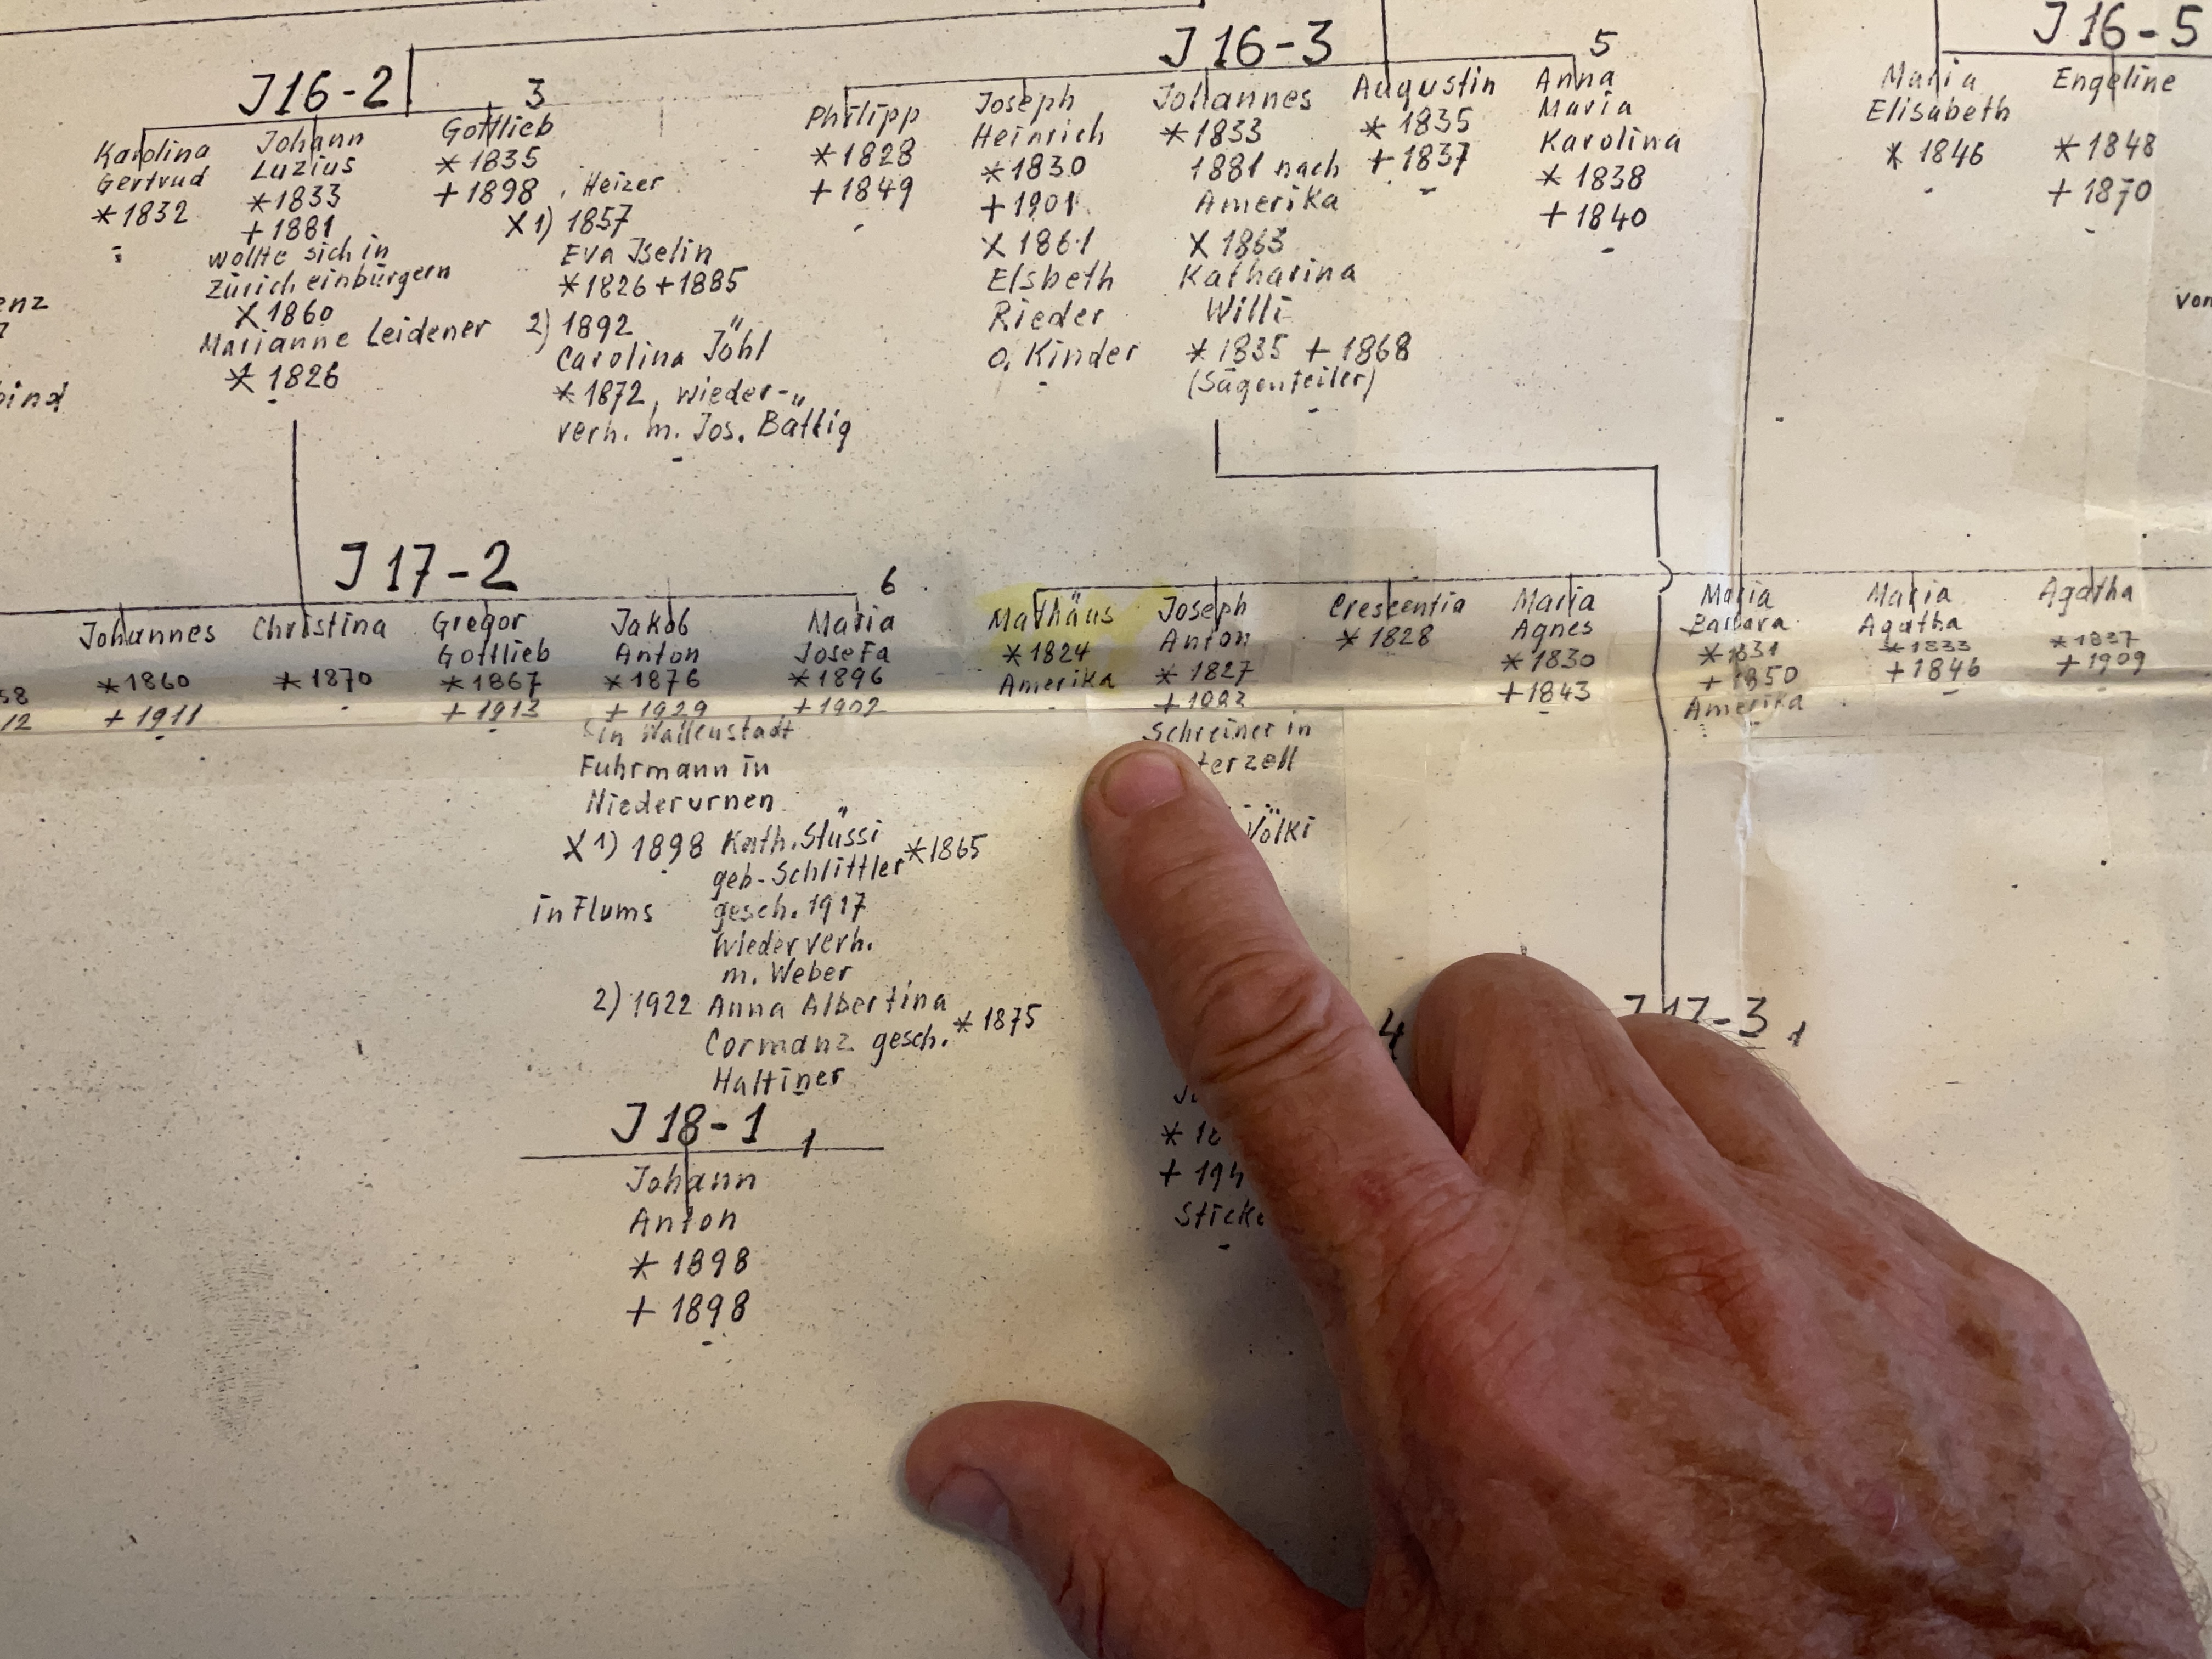 J 16-2
3
Karolina
Gertrud
*1832
Johann
Luzius
*1833
+1881
wollte sich in
Zürich einbürgern
X 1860
Marianne Leidener
* 1826
Gottlieb
*1835
+1898, Heizer
X 1) 1857
Eva Iselin
*1826+1885
2) 1892
Carolina Jöhl
*1872, wieder-
verh. m. Jos. Bättig
enz
J 16-3
5
Philipp
*1828
+1849
Joseph
Heinrich
*1830
+1901
X 1861
Elsbeth
Rieder
o. Kinder
Johannes
*1833
1881 nach
Amerika
X 1863
Katharina
Willi
*1835 +1868
(Sägenteiler)
Augustin
* 1835
+1837
Anna
Maria
Karolina
* 1838
+1840
J 16-5
Maria
Elisabeth
* 1846
Engeline
*1848
+1870
von
J 17-2
6
58
12
Johannes
*1860
+1911
Christina
*1870
Gregor
Gottlieb
*1867
+1913
Jakob
Anton
*1876
+1929
in Wallenstadt
Fuhrmann in
Niederurnen
X 1) 1898 Kath. Stüssi
geb. Schlittler *1865
in Flums gesch. 1917
Wiederverh.
m. Weber
2) 1922 Anna Albertina
Cormanz gesch. *1875
Haltiner
Maria
Josefa
*1896
+1902
Mathäus
*1824
Amerika
Joseph
Anton
*1827
Schreiner in
terzell
Völki
Crescentia
*1828
Maria
Agnes
*1830
+1843
Maria
Barbara
*1831
+1850
Amerika
Maria
Agatha
*1833
+1846
Agatha
*1837
+1909
4
J 17-3 1
J 18-1 1
Johann
Anton
* 1898
+ 1898